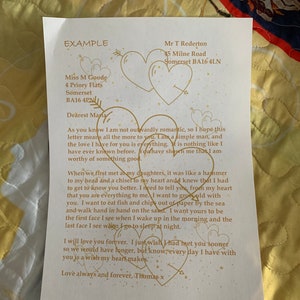 EXAMPLE
Mr T Rederton
45 Milne Road
Somerset BA16 4LN
Miss M Goode
4 Priory Flats
Somerset
BA16
Dearest Maria
As you know I am not outwardly romantic, so I hope this
letter means all the more to you. I am a simple man, and
the love I have for you is everything. It is nothing like I
have ever known before. You have shown me that I am
worthy of something good.
When we first met at my daughters, it was like a hammer
to my head and a chisel to my heart and I knew that I had
to get to know you better. I need to tell you from my heart
that you are everything to me. I want to grow old with
you. I want to eat fish and chips out of paper by the sea
and walk hand in hand on the sand. I want yours to be
the first face I see when I wake up in the morning and the
last face I see when I go to sleep at night.
I will love you forever. I just wish I had met you sooner
so we would have longer, but know every day I have with
you is a wish my heart makes.
Love always and forever, Thomas x